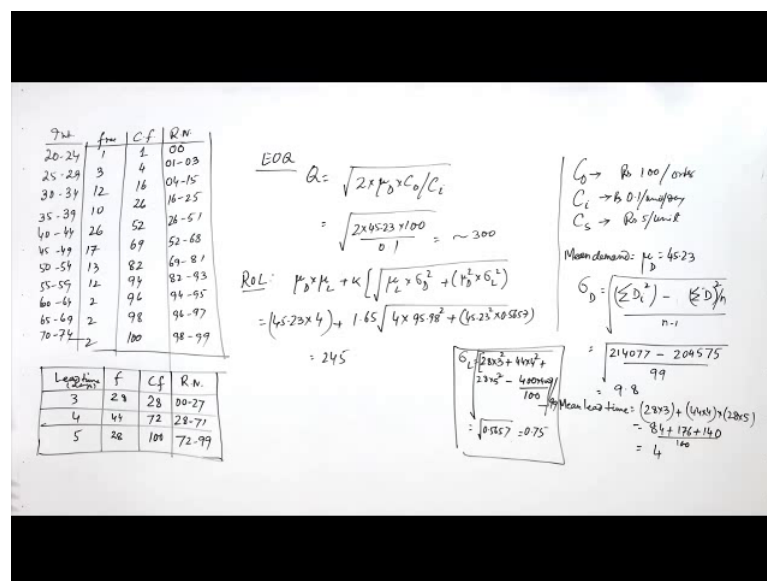 Int. | fre | C.f | R.N.
20-24 | 1 | 1 | 00
25-29 | 3 | 4 | 01-03
30-34 | 12 | 16 | 04-15
35-39 | 10 | 26 | 16-25
40-44 | 26 | 52 | 26-51
45-49 | 17 | 69 | 52-68
50-54 | 13 | 82 | 69-81
55-59 | 12 | 94 | 82-93
60-64 | 2 | 96 | 94-95
65-69 | 2 | 98 | 96-97
70-74 | 2 | 100 | 98-99
Lead time (days) | f | Cf | R.N.
3 | 28 | 28 | 00-27
4 | 44 | 72 | 28-71
5 | 28 | 100 | 72-99
EOQ
Q = √(2×μ_D×C_o/C_i)
= √(2×45.23×100 / 0.1) = ~300
ROL: μ_D×μ_L + K[√(μ_L×σ_D² + (μ_D²×σ_L²)
= (45.23×4) + 1.65√(4×95.98² + (45.23²×0.5657)
= 245
= √0.5657 = 0.75
C_o → Rs 100/order
C_i → Rs 0.1/unit/day
C_s → Rs 5/unit
Mean demand = μ_D = 45.23
σ_D = √((ΣD_i²) - (ΣD)²/n / n-1)
= √(214077 - 204575 / 99)
= 9.8
Mean lead time = (28×3) + (44×4) + (28×5)
= 84 + 176 + 140 / 100
= 4